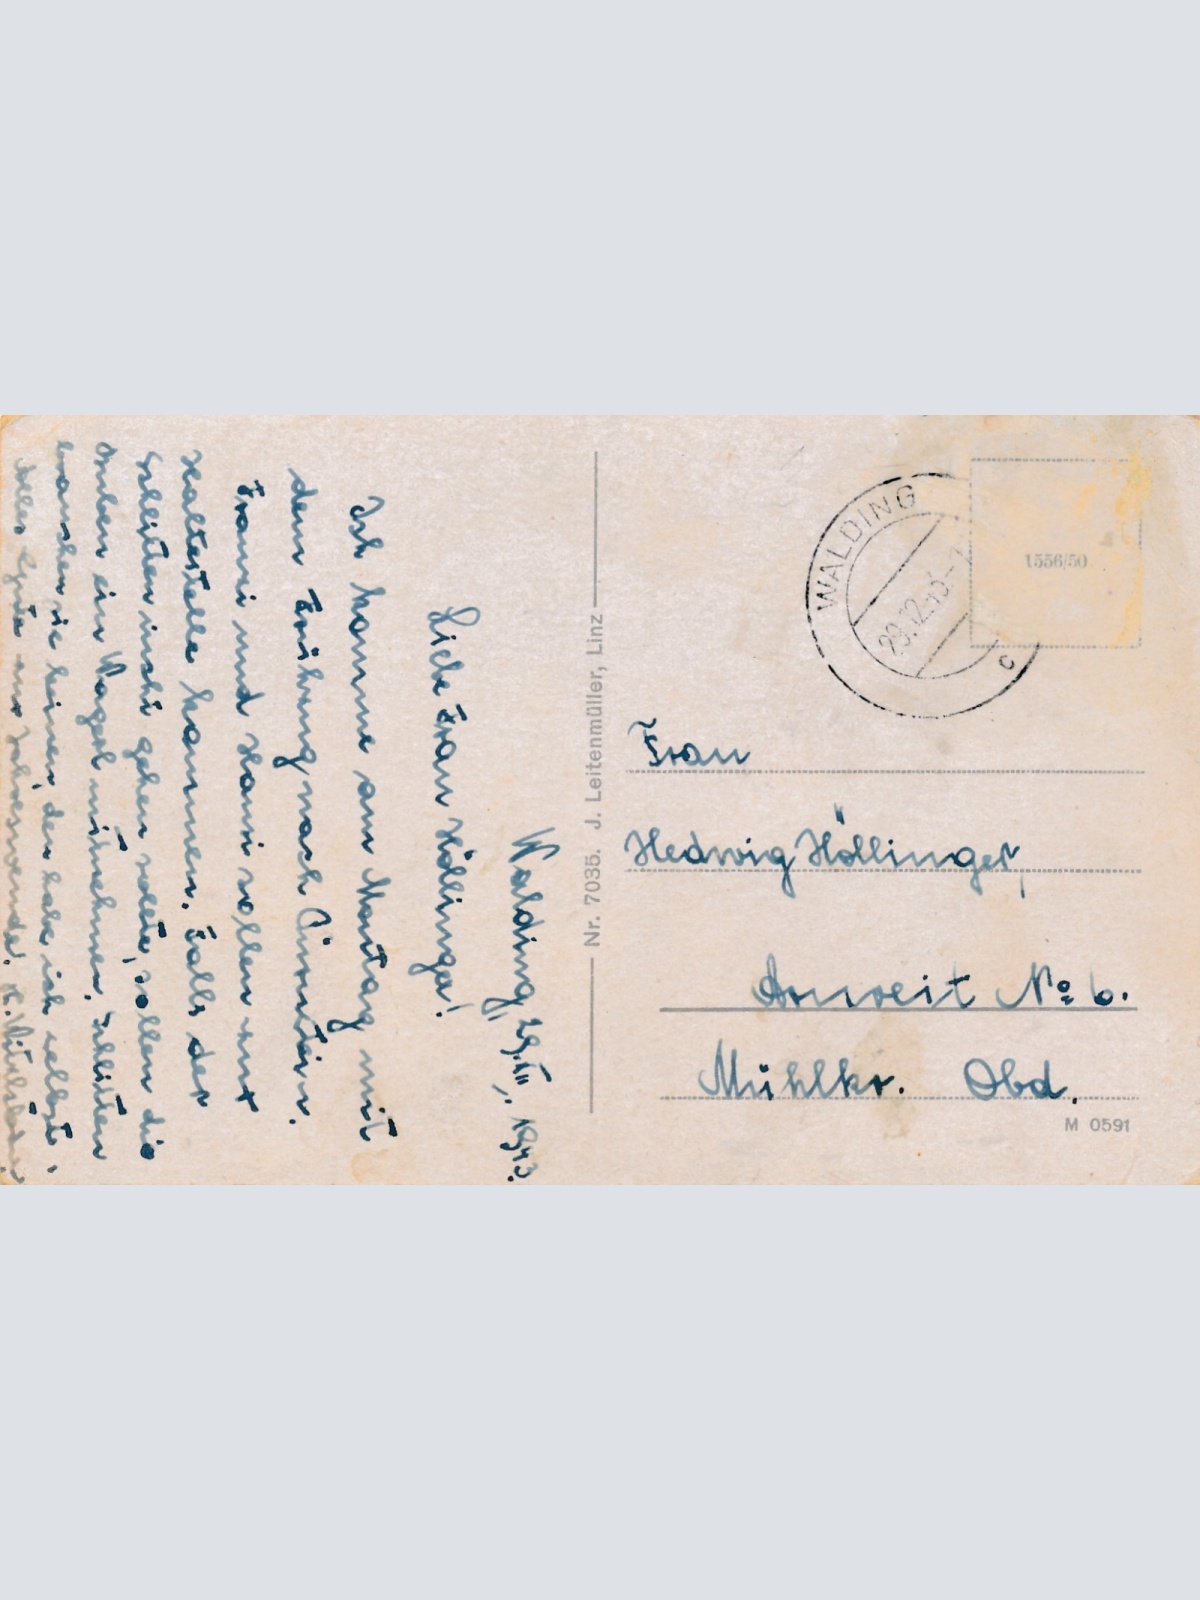 Walding, 29.XII. 1943.
Liebe Frau Höllinger!
Ich komme am Montag mit
dem Frühzug nach
Franzi und Hansi sollen zur
Haltestelle kommen. Falls der
Schlitten nicht gehen sollte, sollen die
Buben ein Wagerl mitnehmen. Schlitten
brauchen sie keinen, den habe ich selbst.
Alles Gute zur Jahreswende.
Nr. 7035. J. Leitenmüller, Linz
WALDING
29.12.43.-7
c
1556/50
Frau
Hedwig Höllinger,
Arnreit No 6.
Mühlkr. Obd.
M 0591